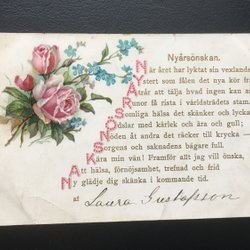 Nyårsönskan.
När året har lyktat sin vexlande
Ystert som fålen det nya kör
Åtrår att tälja hvad ingen kan
Runor få rista i världsträdets stam.
Somliga hälsa det skänker och lycka
Ödslar med kärlek och ära och gull;
Nöden åt andra det räcker till krycka
Sorgens och saknadens bägare full.
Kära min vän! Framför allt jag vill önska,
Att hälsa, förnöjsamhet, trefnad och frid
Ny glädje dig skänka i kommande tid.
af Laura Gustafsson